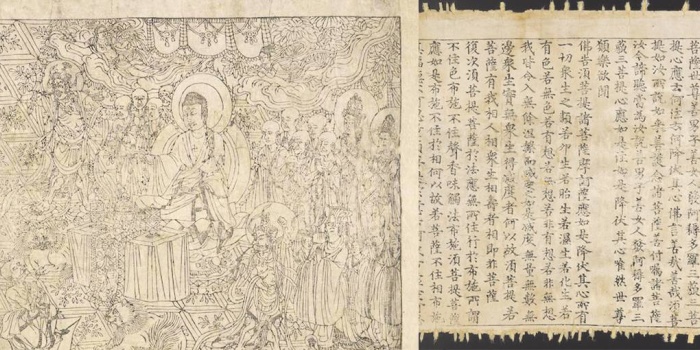 提心應云何住云何降伏其心佛言善哉善哉須菩
提如汝所說如來善護念諸菩薩善付囑諸菩薩
汝今諦聽當為汝說善男子善女人發阿耨多羅三
藐三菩提心應如是住如是降伏其心唯然世尊
願樂欲聞
佛告須菩提諸菩薩摩訶薩應如是降伏其心所有
一切衆生之類若卵生若胎生若濕生若化生若
有色若無色若有想若無想若非有想若非無想
我皆令入無餘涅槃而滅度之如是滅度無量無數無
邊衆生實無衆生得滅度者何以故須菩提若
菩薩有我相人相衆生相壽者相即非菩薩
復次須菩提菩薩於法應無所住行於布施所謂
不住色布施不住聲香味觸法布施須菩提菩薩
應如是布施不住於相何以故若菩薩不住相布施